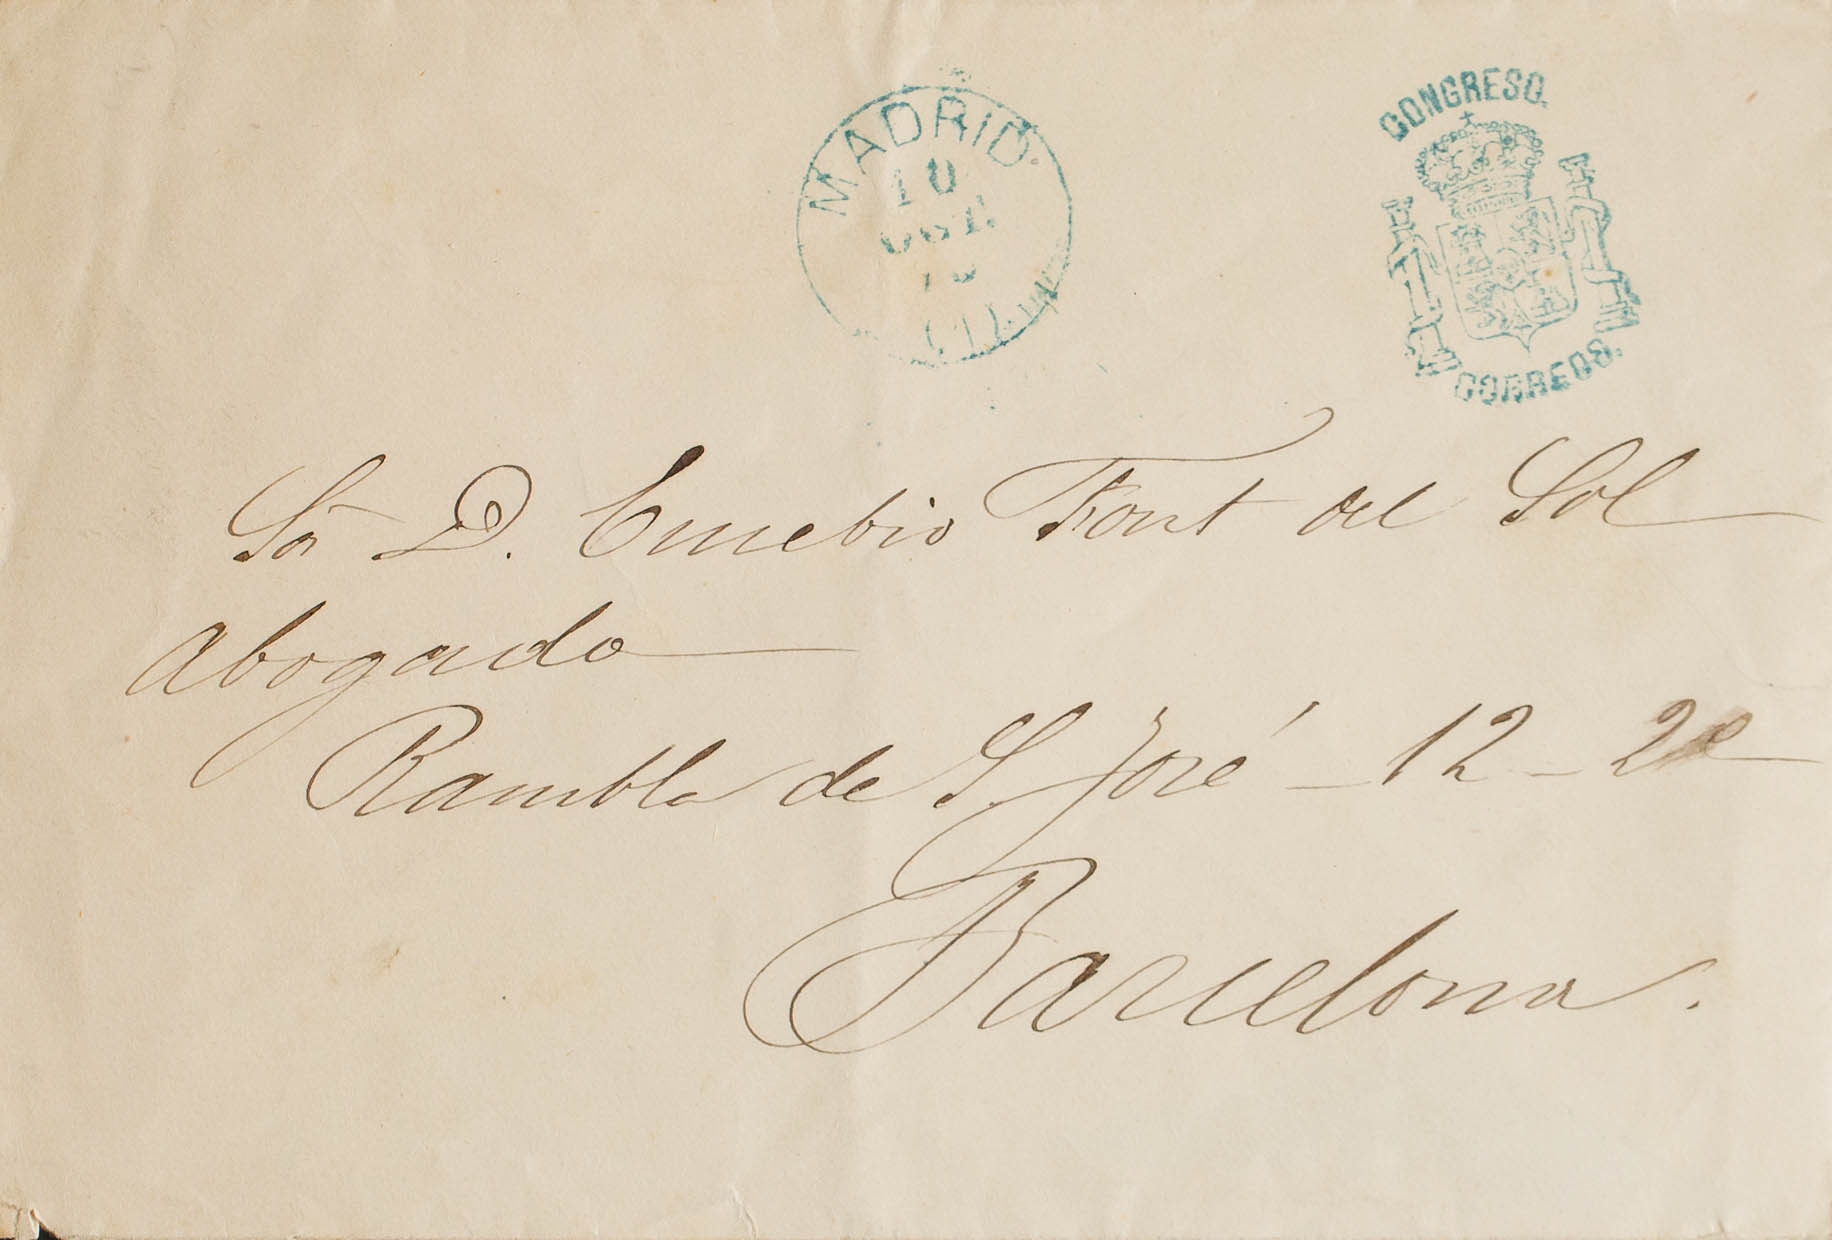 MADRID
10
(1)
CONGRESO.
CORREOS.
Sr D. Eusebio Font del Sol
Abogado
Rambla de S. José - 12 - 2º
Barcelona.